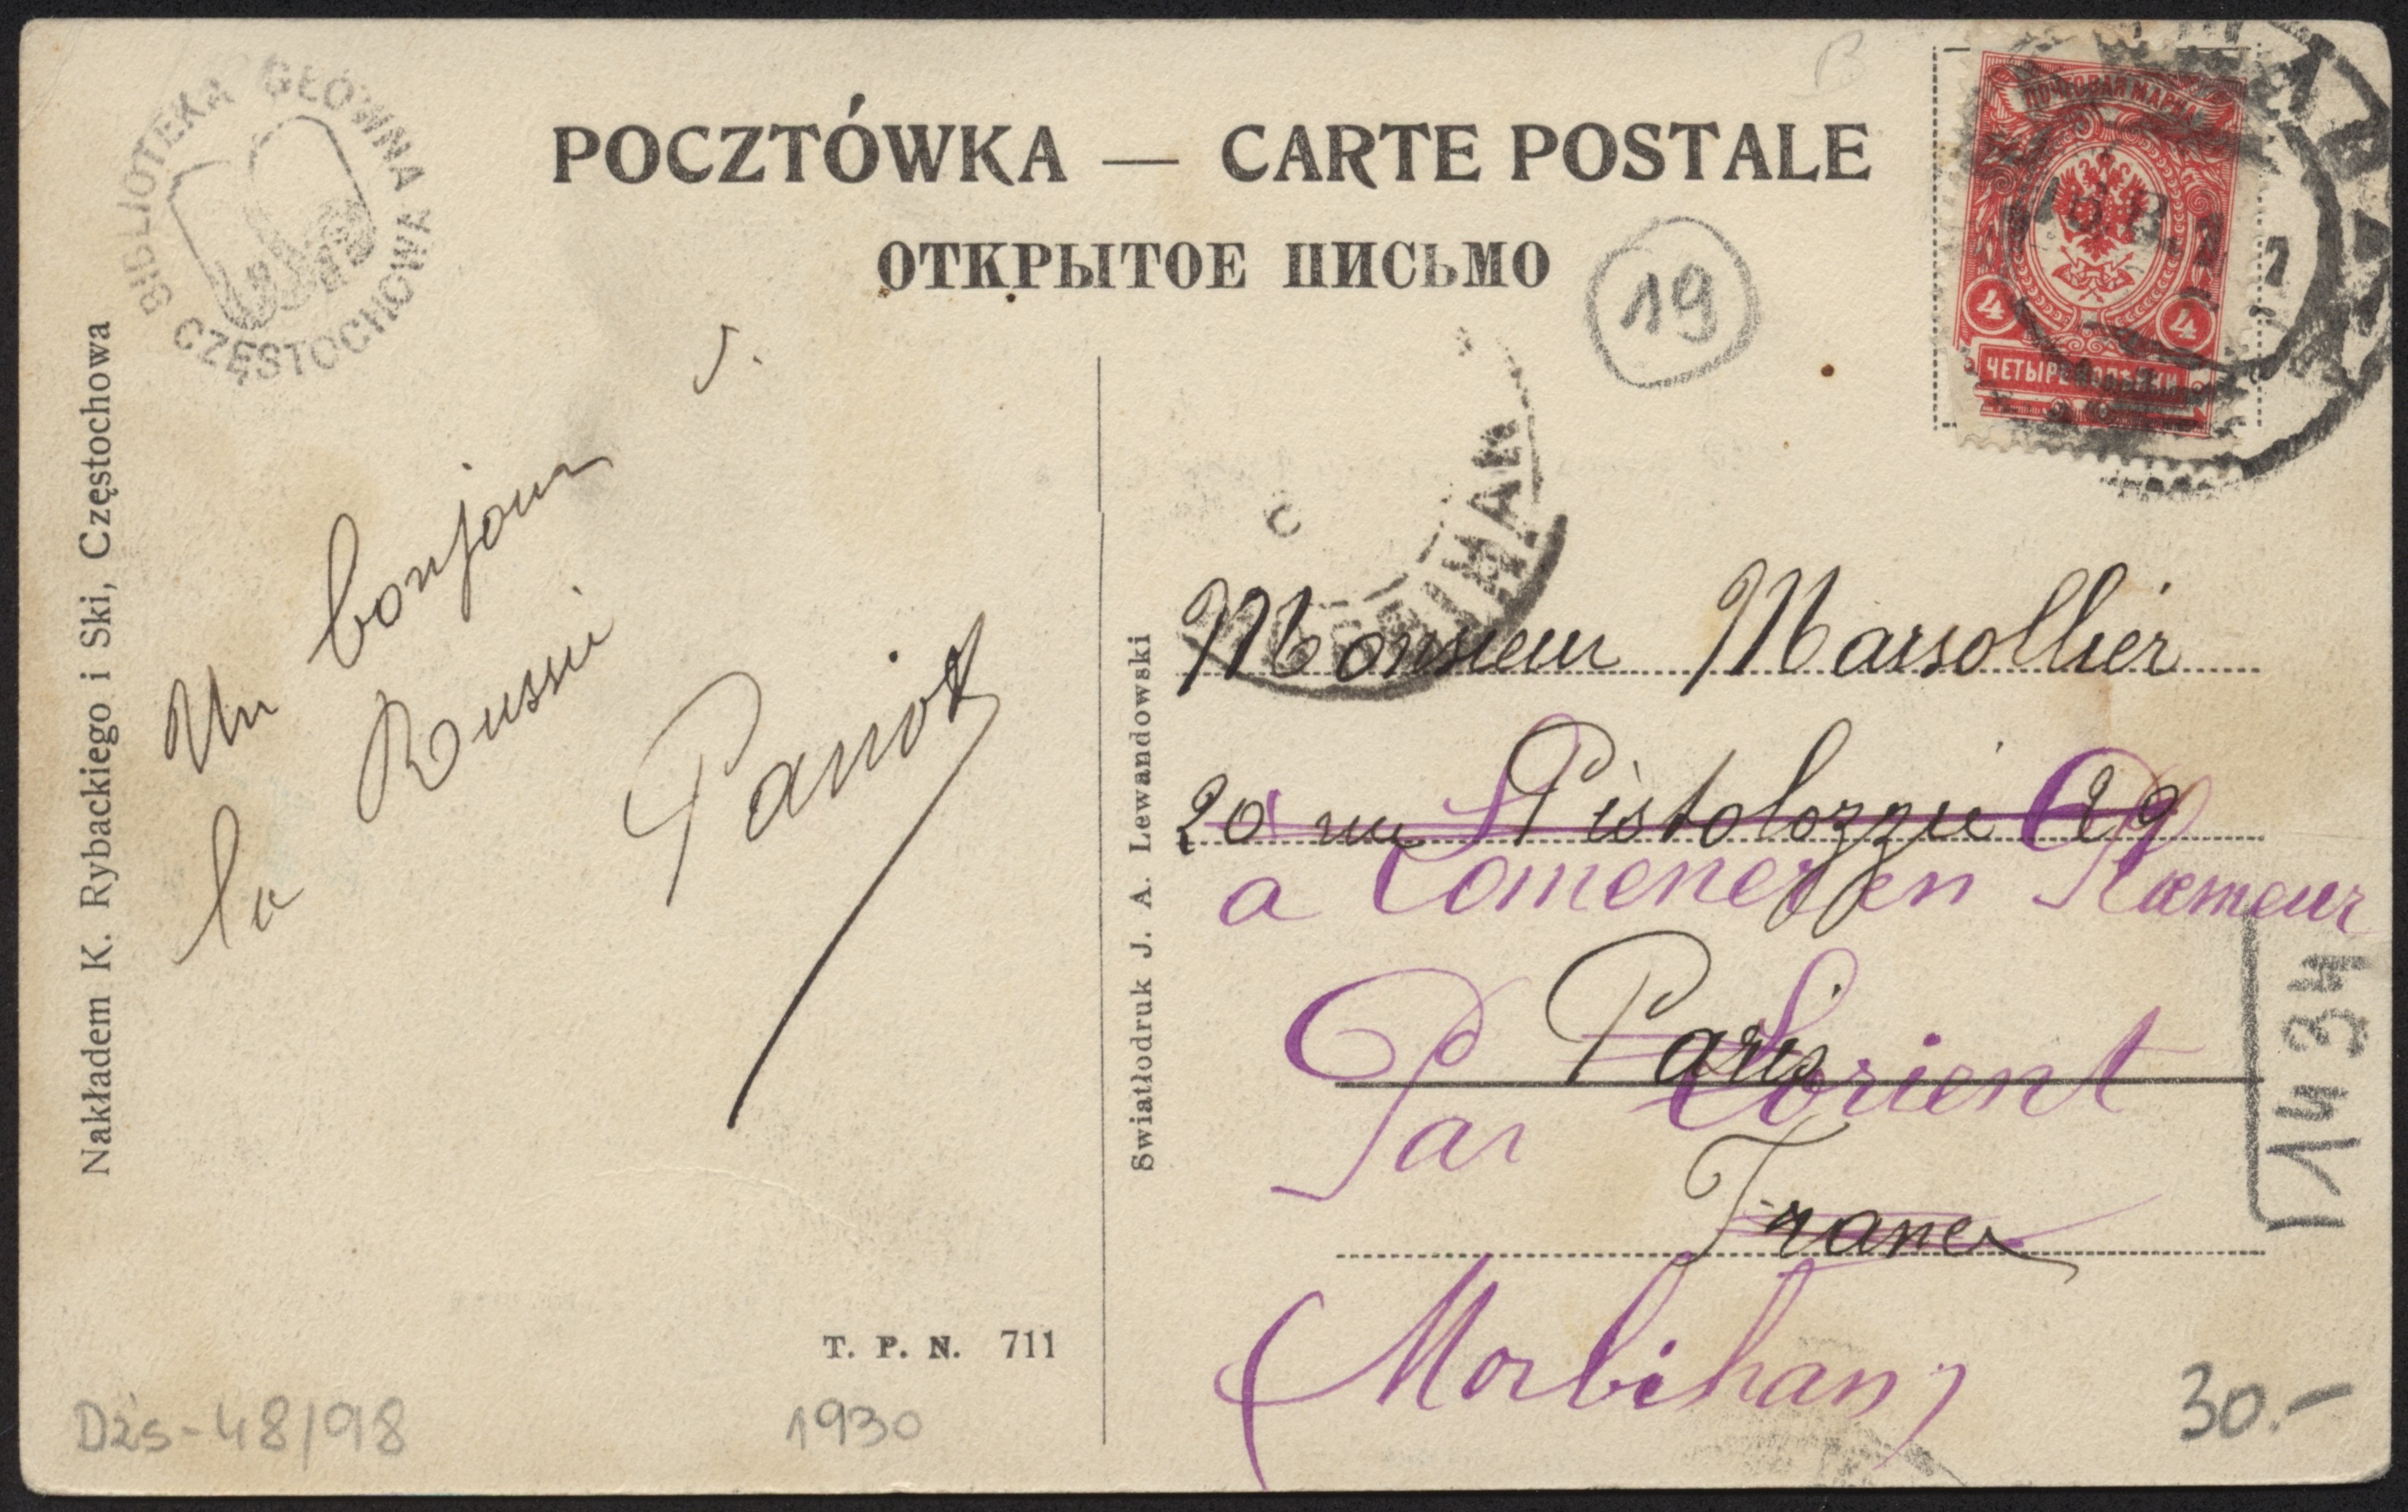 BIBLIOTEKA GŁÓWNA
CZĘSTOCHOWA
POCZTÓWKA — CARTE POSTALE
ОТКРЫТОЕ ПИСЬМО
19
ПОЧТОВАЯ МАРКА
4 4
ЧЕТЫРЕ КОПѢЙКИ
Nakładem K. Rybackiego i Ski, Częstochowa
Un bonjour
la Russie
Swiatłodruk J. A. Lewandowski
MORBIHAN
Monsieur Marsollier
20 rue Pistolozzie
a Lomener en Plœmeur
Paris
Par Lorient
France
(Morbihan)
1434
T. P. N. 711
Dżs-48/98
1930
30.-